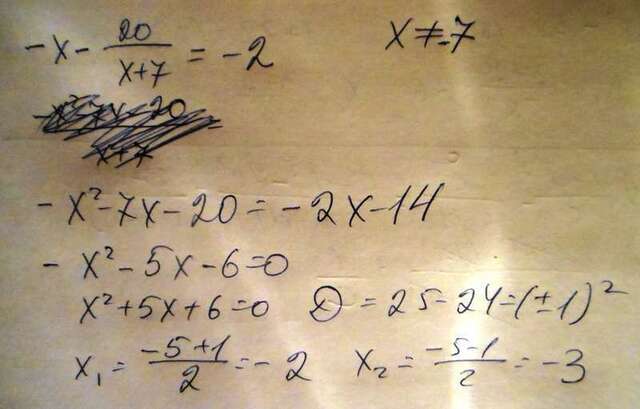 -x - 20/(x+7) = -2 x ≠ -7
-x² - 7x - 20 = -2x - 14
-x² - 5x - 6 = 0
x² + 5x + 6 = 0 D = 25 - 24 = (±1)²
x₁ = (-5+1)/2 = -2 x₂ = (-5-1)/2 = -3